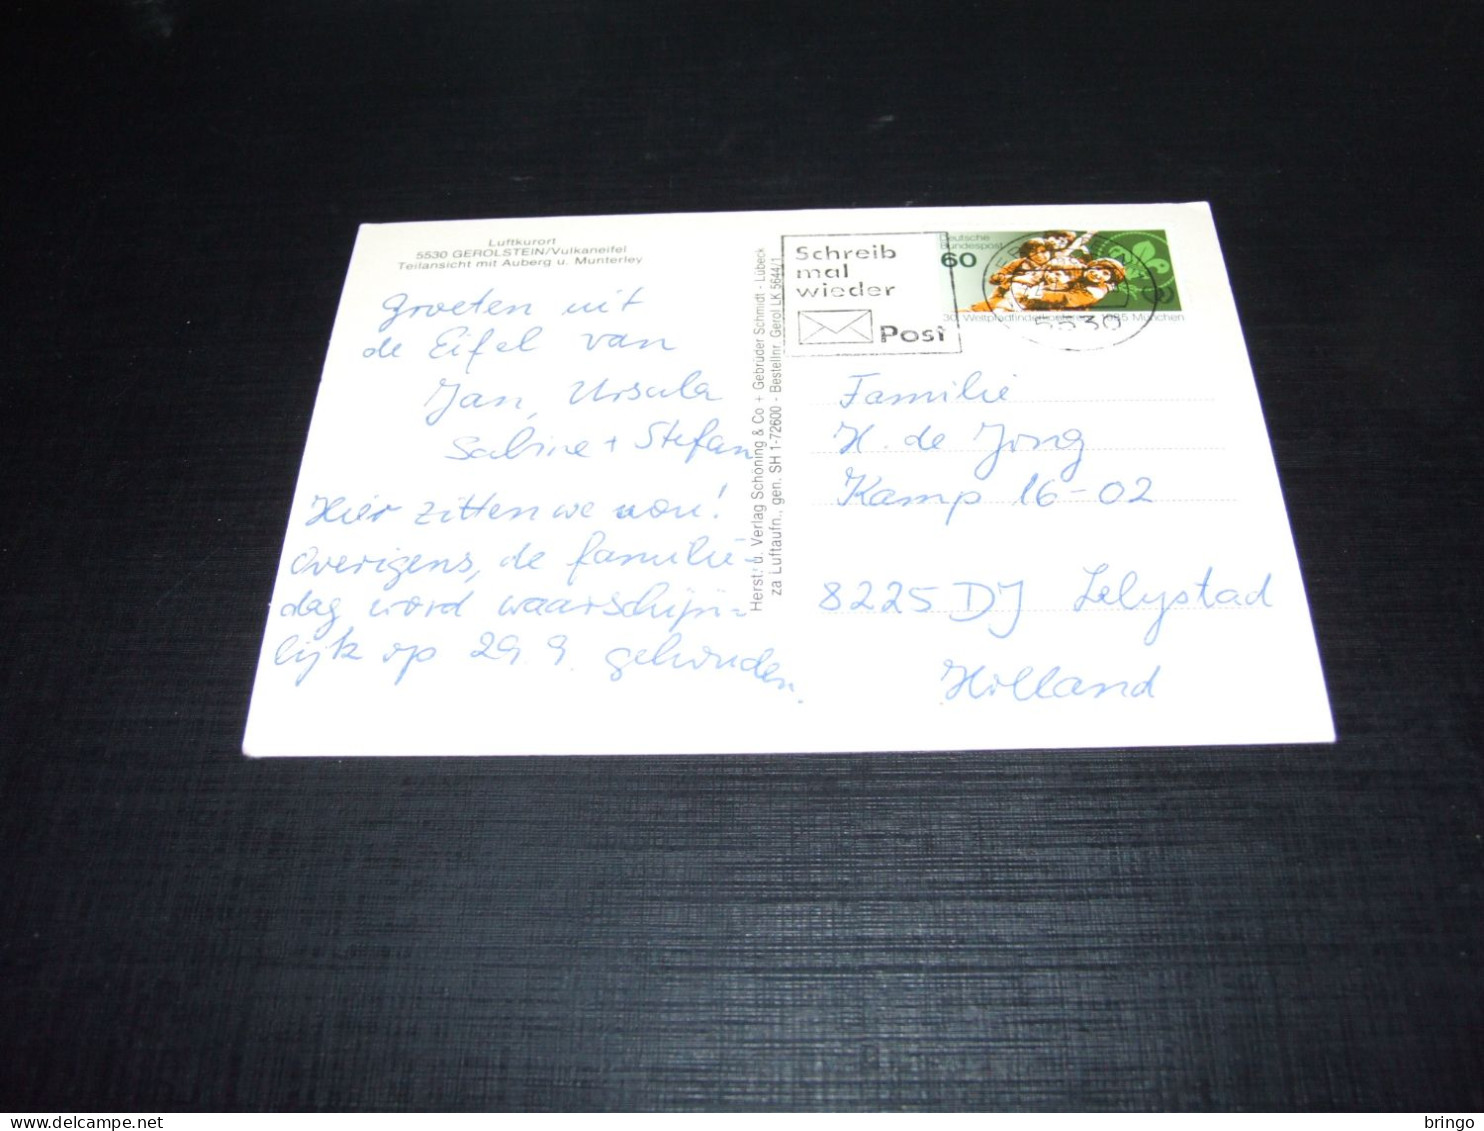 Luftkurort
5530 GEROLSTEIN/Vulkaneifel
Teilansicht mit Auberg u. Munterley
Groeten uit
de Eifel van
Jan, Ursula
Sabine + Stefan
Hier zitten we nou!
Overigens, de familie-
dag word waarschijn-
lijk op 29.9. gehouden.
Herst. u. Verlag Schöning & Co + Gebrüder Schmidt - Lübeck
za Luftaufn., gen. SH 1-72600 - Bestellnr. Gerol LK 5644/1
Schreib
mal
wieder
Post
Deutsche
Bundespost
60
1985 München
5530
Familie
H. de Jong
Kamp 16-02
8225 DJ Lelystad
Holland
bringo